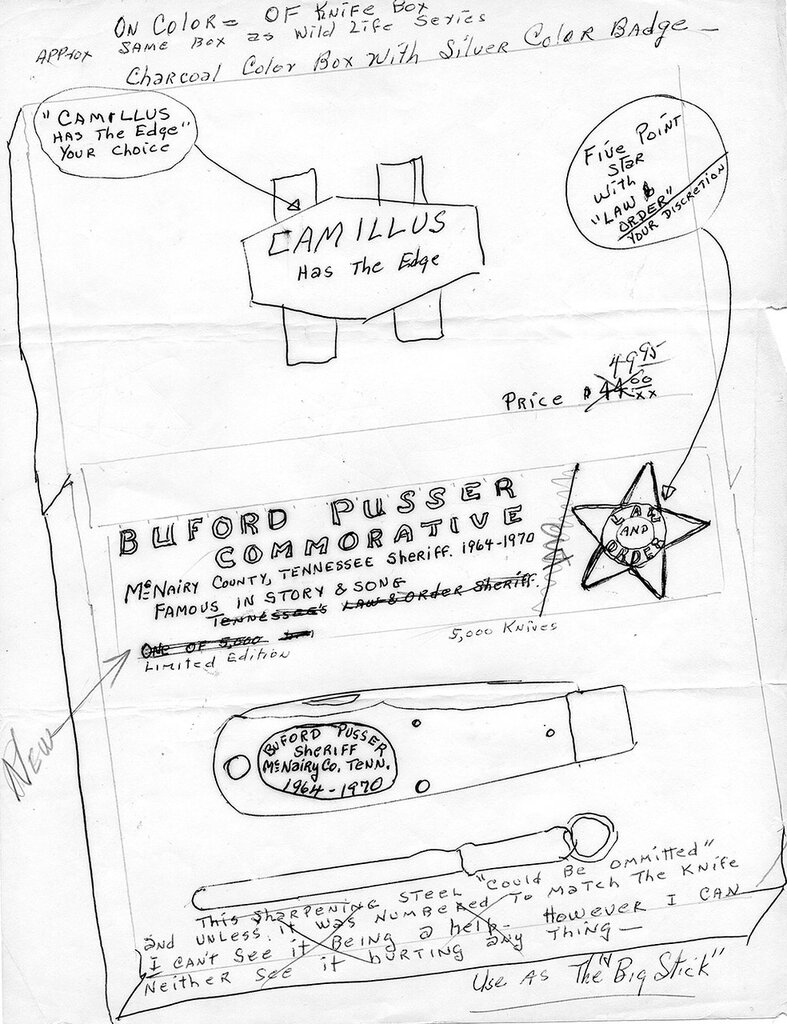 ON COLOR = OF Knife Box
APProx SAME Box as Wild Life Series
Charcoal Color Box With Silver Color Badge —
"CAMILLUS
HAS The Edge"
YOUR CHOICE
FIVE POINT
STAR
With
"LAW &
ORDER"
YOUR DISCRETION
CAMILLUS
Has The Edge
49.95
Price $ 44.00
XX
BUFORD PUSSER
COMMORATIVE
McNAIRY COUNTY, TENNESSEE SHERIFF. 1964-1970
FAMOUS IN STORY & SONG
TENNESSEE'S LAW & ORDER SHERIFF.
ONE OF 5,000
LIMITED EDITION
5,000 KNIVES
LAW
AND
ORDER
NEW
BUFORD PUSSER
SHERIFF
McNAIRY CO, TENN.
1964-1970
THIS SHARPENING STEEL "COULD BE OMMITTED"
and UNLESS IT WAS NUMBERED TO MATCH THE KNIFE
I CAN'T SEE it BEING a help. However I CAN
NEITHER SEE it hURTING any Thing —
USE AS The "Big Stick"